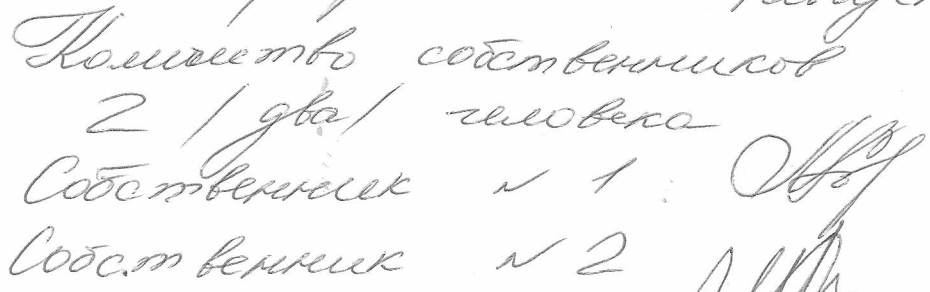 Количество собственников
2 /два/ человека
Собственник N 1
Собственник N 2